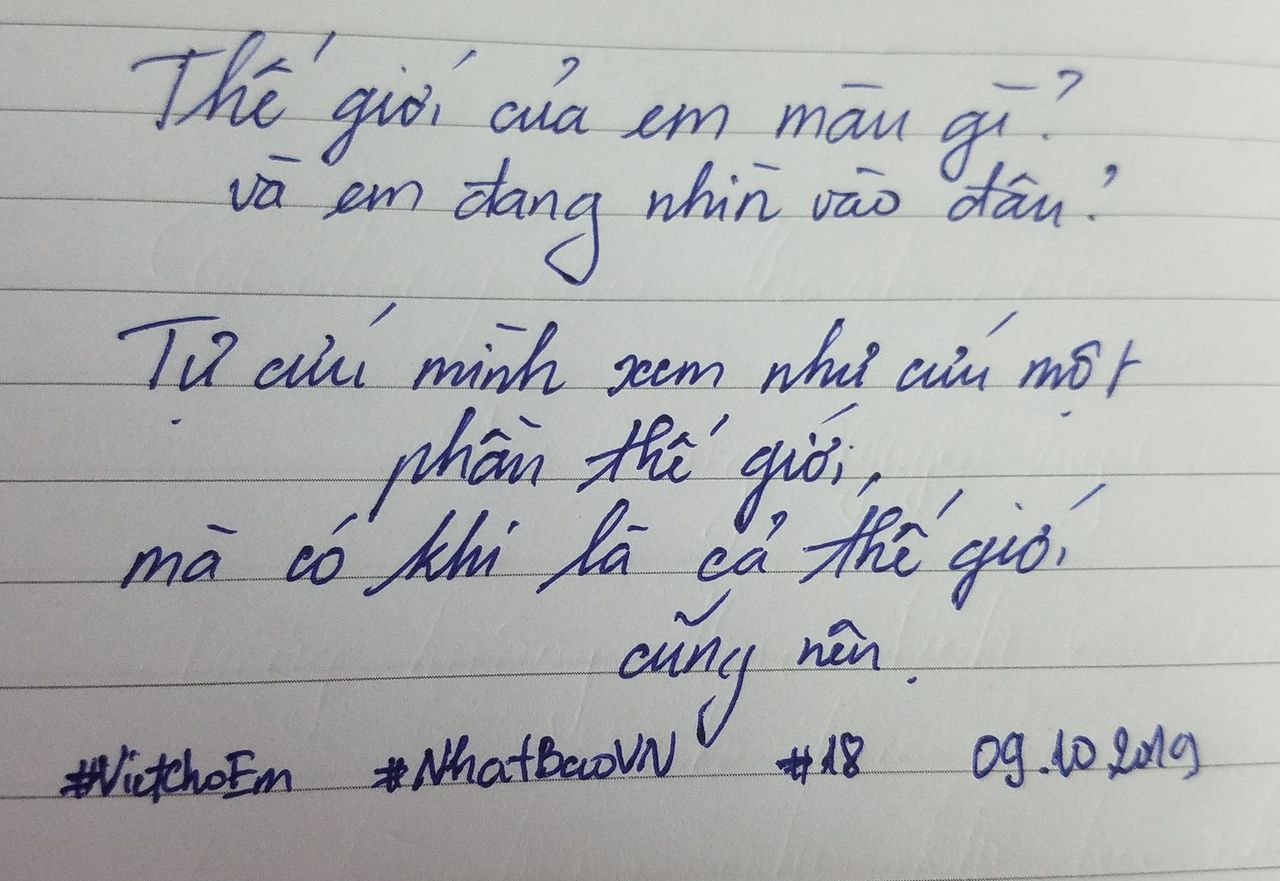 Thế giới của em màu gì?
và em đang nhìn vào đâu?
Tự cứu mình xem như cứu một
phần thế giới,
mà có khi là cả thế giới
cũng nên.
#VietchoEm #NhatBaoVN #18 09.10.2019